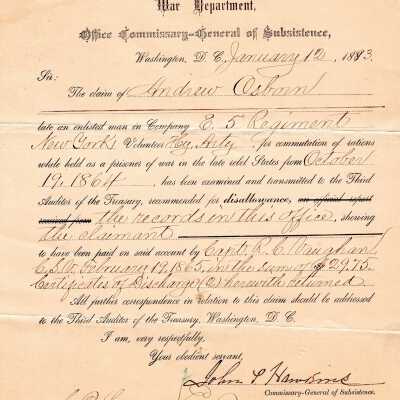 War Department,
Office Commissary-General of Subsistence,
Washington, D. C., January 12, 1883.
Sir:
The claim of Andrew Osborn
late an enlisted man in Company E. 5 Regiment
New York Volunteers Hy. Arty for commutation of rations
while held as a prisoner of war in the late rebel States from October
19, 1864, has been examined and transmitted to the Third
Auditor of the Treasury, recommended for disallowance, an official report
received from the records in this office, showing
the claimant
to have been paid on said account by Capt. R. C. Vaughan
C.S.V. February 19, 1865, in the sum of $29.75.
Certificates of Discharge (2) herewith returned
All further correspondence in relation to this claim should be addressed
to the Third Auditor of the Treasury, Washington, D. C.
I am, very respectfully,
Your obedient servant,
John P. Hawkins
Commissary-General of Subsistence.